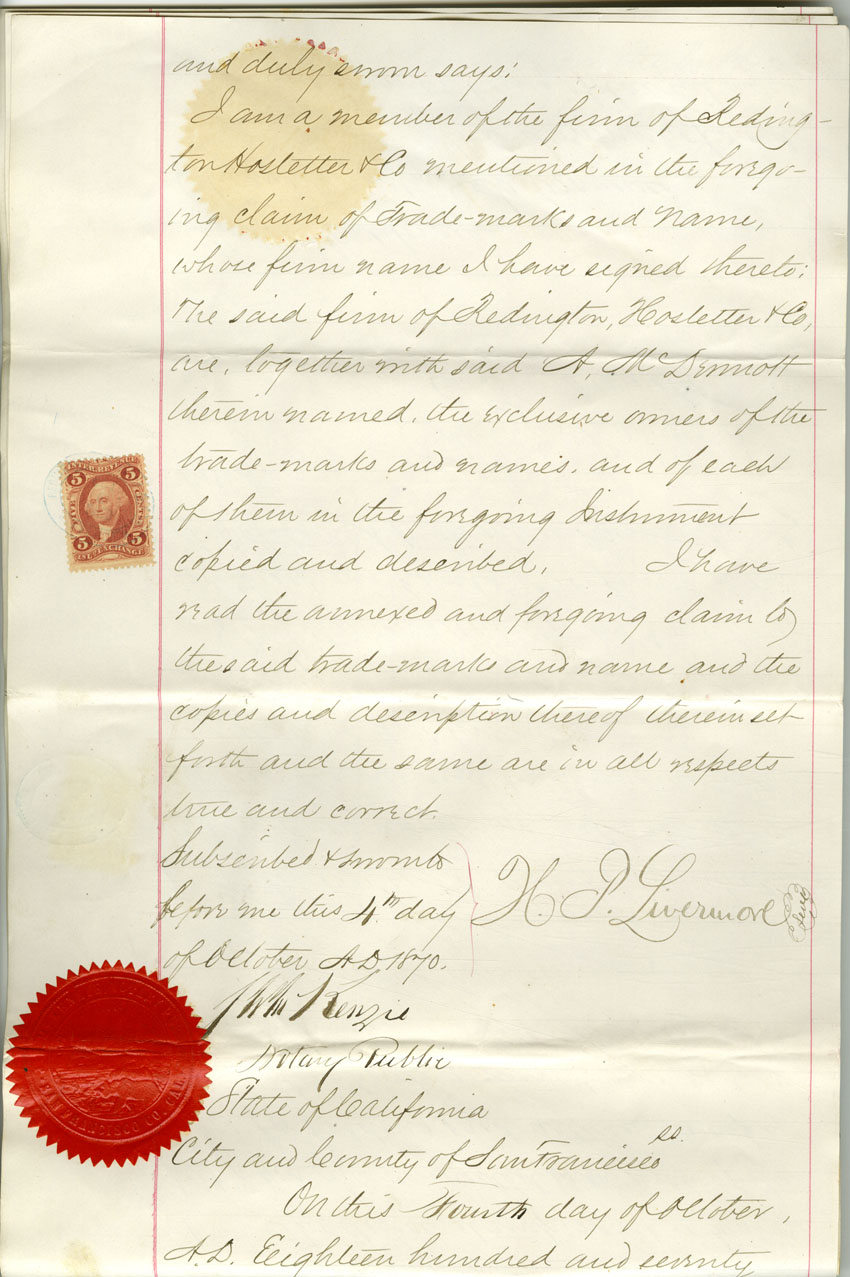 and duly sworn says:
I am a member of the firm of Reding-
ton Hostetter & Co mentioned in the forego-
ing claim of Trade-marks and Name,
whose firm name I have signed thereto;
The said firm of Redington, Hostetter & Co,
are, together with said A. McDermott
therein named, the exclusive owners of the
trade-marks and names, and of each
of them in the foregoing Instrument
copied and described. I have
read the annexed and foregoing claim to
the said trade-marks and name and the
copies and description thereof therein set
forth and the same are in all respects
true and correct.
Subscribed & sworn to
before me this 4th day
of October A.D. 1870.
H. P. Livermore
Kenzie
Notary Public
State of California
City and County of San Francisco ss.
On this Fourth day of October,
A.D. Eighteen hundred and seventy
INTER. REVENUE
5 5
FIVE CENTS
5 5
EXCHANGE
SAN FRANCISCO CO. CAL.